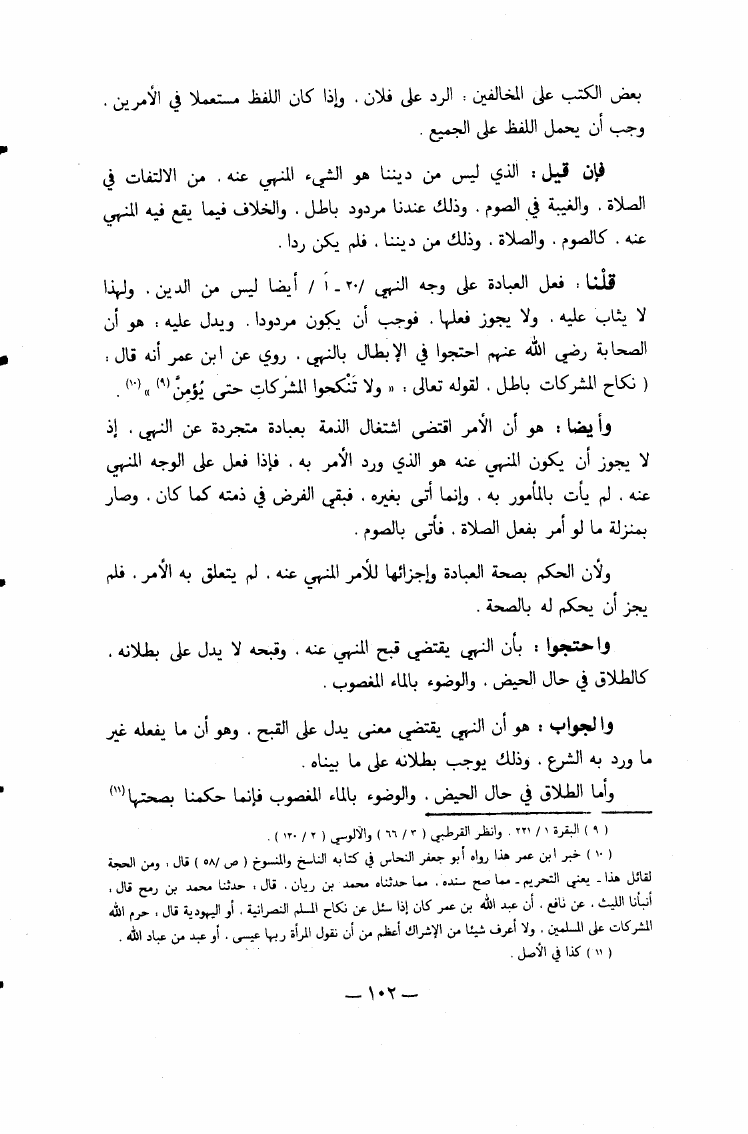 بعض الكتب على المخالفين : الرد على فلان . وإذا كان اللفظ مستعملا في الأمرين .
وجب أن يحمل اللفظ على الجميع .
فإن قيل : الذي ليس من ديننا هو الشيء المنهي عنه . من الالتفات في
الصلاة . والغيبة في الصوم . وذلك عندنا مردود باطل . والخلاف فيما يقع فيه المنهي
عنه . كالصوم . والصلاة . وذلك من ديننا . فلم يكن ردا .
قلْنا : فعل العبادة على وجه النهي /٢٠ ـ أ / أيضا ليس من الدين . ولهذا
لا يثاب عليه . ولا يجوز فعلها . فوجب أن يكون مردودا . ويدل عليه : هو أن
الصحابة رضي الله عنهم احتجوا في الإبطال بالنهي . روي عن ابن عمر أنه قال :
( نكاح المشركات باطل . لقوله تعالى : « ولا تَنْكحوا المشركاتِ حتى يُؤمِنَّ (٩) » (١٠) .
وأيضا : هو أن الأمر اقتضى اشتغال الذمة بعبادة متجردة عن النهي . إذ
لا يجوز أن يكون المنهي عنه هو الذي ورد الأمر به . فإذا فعل على الوجه المنهي
عنه . لم يأت بالمأمور به . وإنما أتى بغيره . فبقي الفرض في ذمته كما كان . وصار
بمنزلة ما لو أمر بفعل الصلاة . فأتى بالصوم .
ولأن الحكم بصحة العبادة وإجزائها للأمر المنهي عنه . لم يتعلق به الأمر . فلم
يجز أن يحكم له بالصحة .
واحتجوا : بأن النهي يقتضي قبح المنهي عنه . وقبحه لا يدل على بطلانه .
كالطلاق في حال الحيض . والوضوء بالماء المغصوب .
والجواب : هو أن النهي يقتضي معنى يدل على القبح . وهو أن ما يفعله غير
ما ورد به الشرع . وذلك يوجب بطلانه على ما بيناه .
وأما الطلاق في حال الحيض . والوضوء بالماء المغصوب فإنما حكمنا بصحتها (١١)
( ٩ ) البقرة ١ / ٢٢١ . وانظر القرطبي ( ٣ / ٦٦ ) والآلوسي ( ٢ / ١٢٠ ) .
( ١٠ ) خبر ابن عمر هذا رواه أبو جعفر النحاس في كتابه الناسخ والمنسوخ ( ص /٥٨ ) قال : ومن الحجة
لقائل هذا ـ يعني التحريم ـ مما صح سنده . مما حدثناه محمد بن ريان . قال : حدثنا محمد بن رمح قال :
أنبأنا الليث . عن نافع . أن عبد الله بن عمر كان إذا سئل عن نكاح المسلم النصرانية . أو اليهودية قال : حرم الله
المشركات على المسلمين . ولا أعرف شيئا من الإشراك أعظم من أن تقول المرأة ربها عيسى . أو عبد من عباد الله .
( ١١ ) كذا في الأصل .
— ١٠٢ —